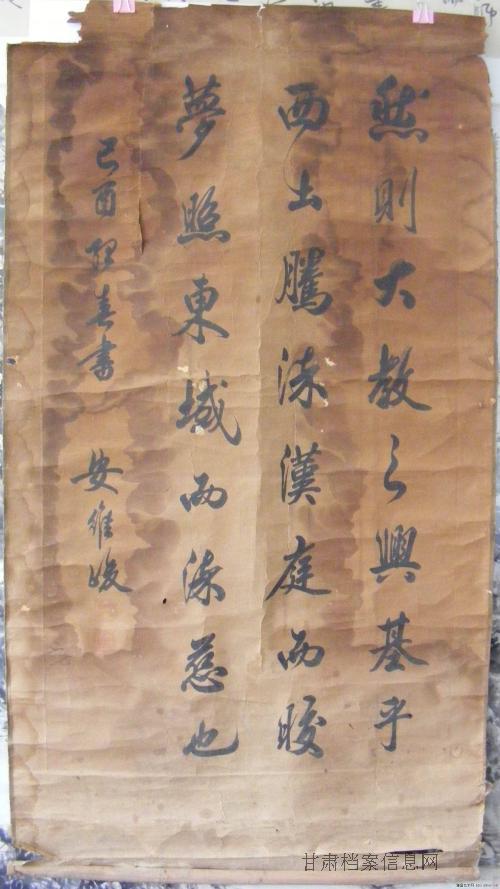 然則大教之興基乎
西土騰流漢庭而晈
夢照東域而流慈也
己酉春書 安維峻
甘肃档案信息网